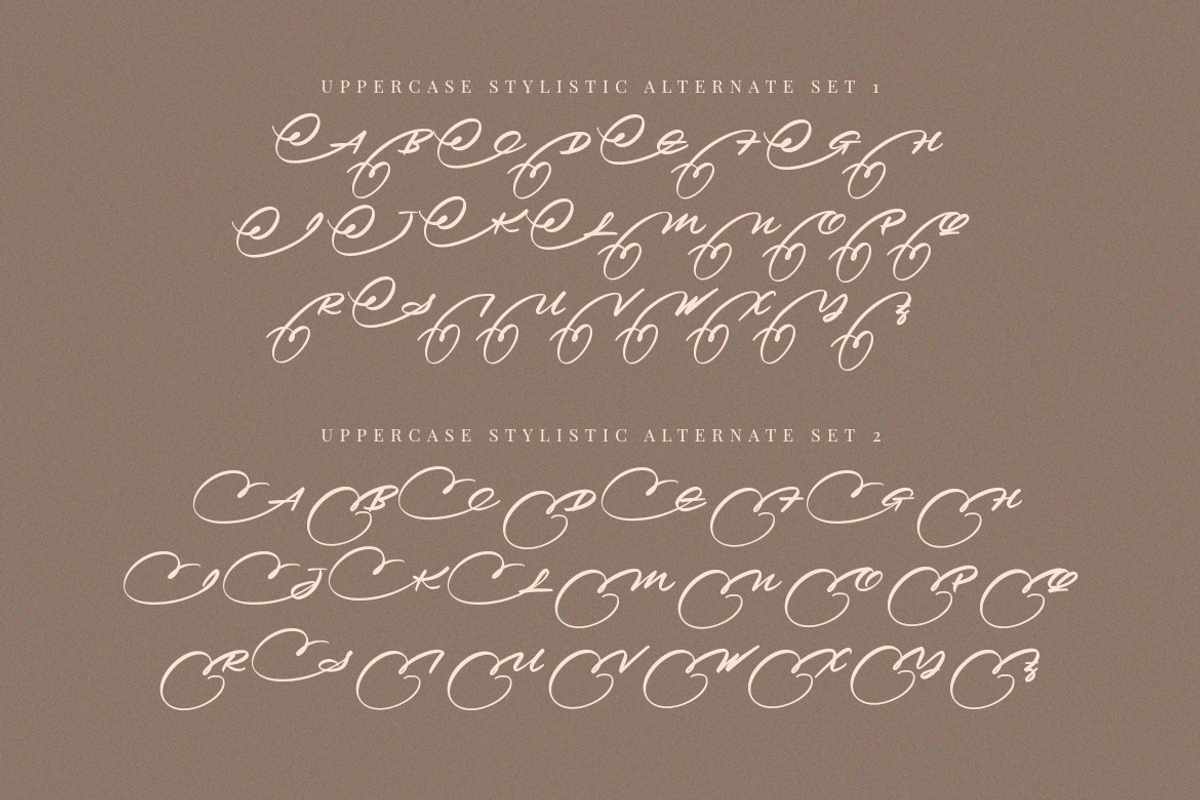 UPPERCASE STYLISTIC ALTERNATE SET 1
A B C D E F G H
I J K L M N O P Q
R S T U V W X Y Z
UPPERCASE STYLISTIC ALTERNATE SET 2
A B C D E F G H
I J K L M N O P Q
R S T U V W X Y Z